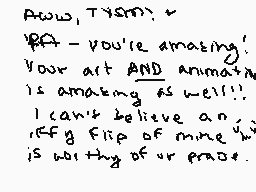 Aww, TYSM!! +
RA - you're amazing!
Your art AND animatin
is amazing as well!!
I can't believe an
iffy flip of mine
is worthy of ur praise.